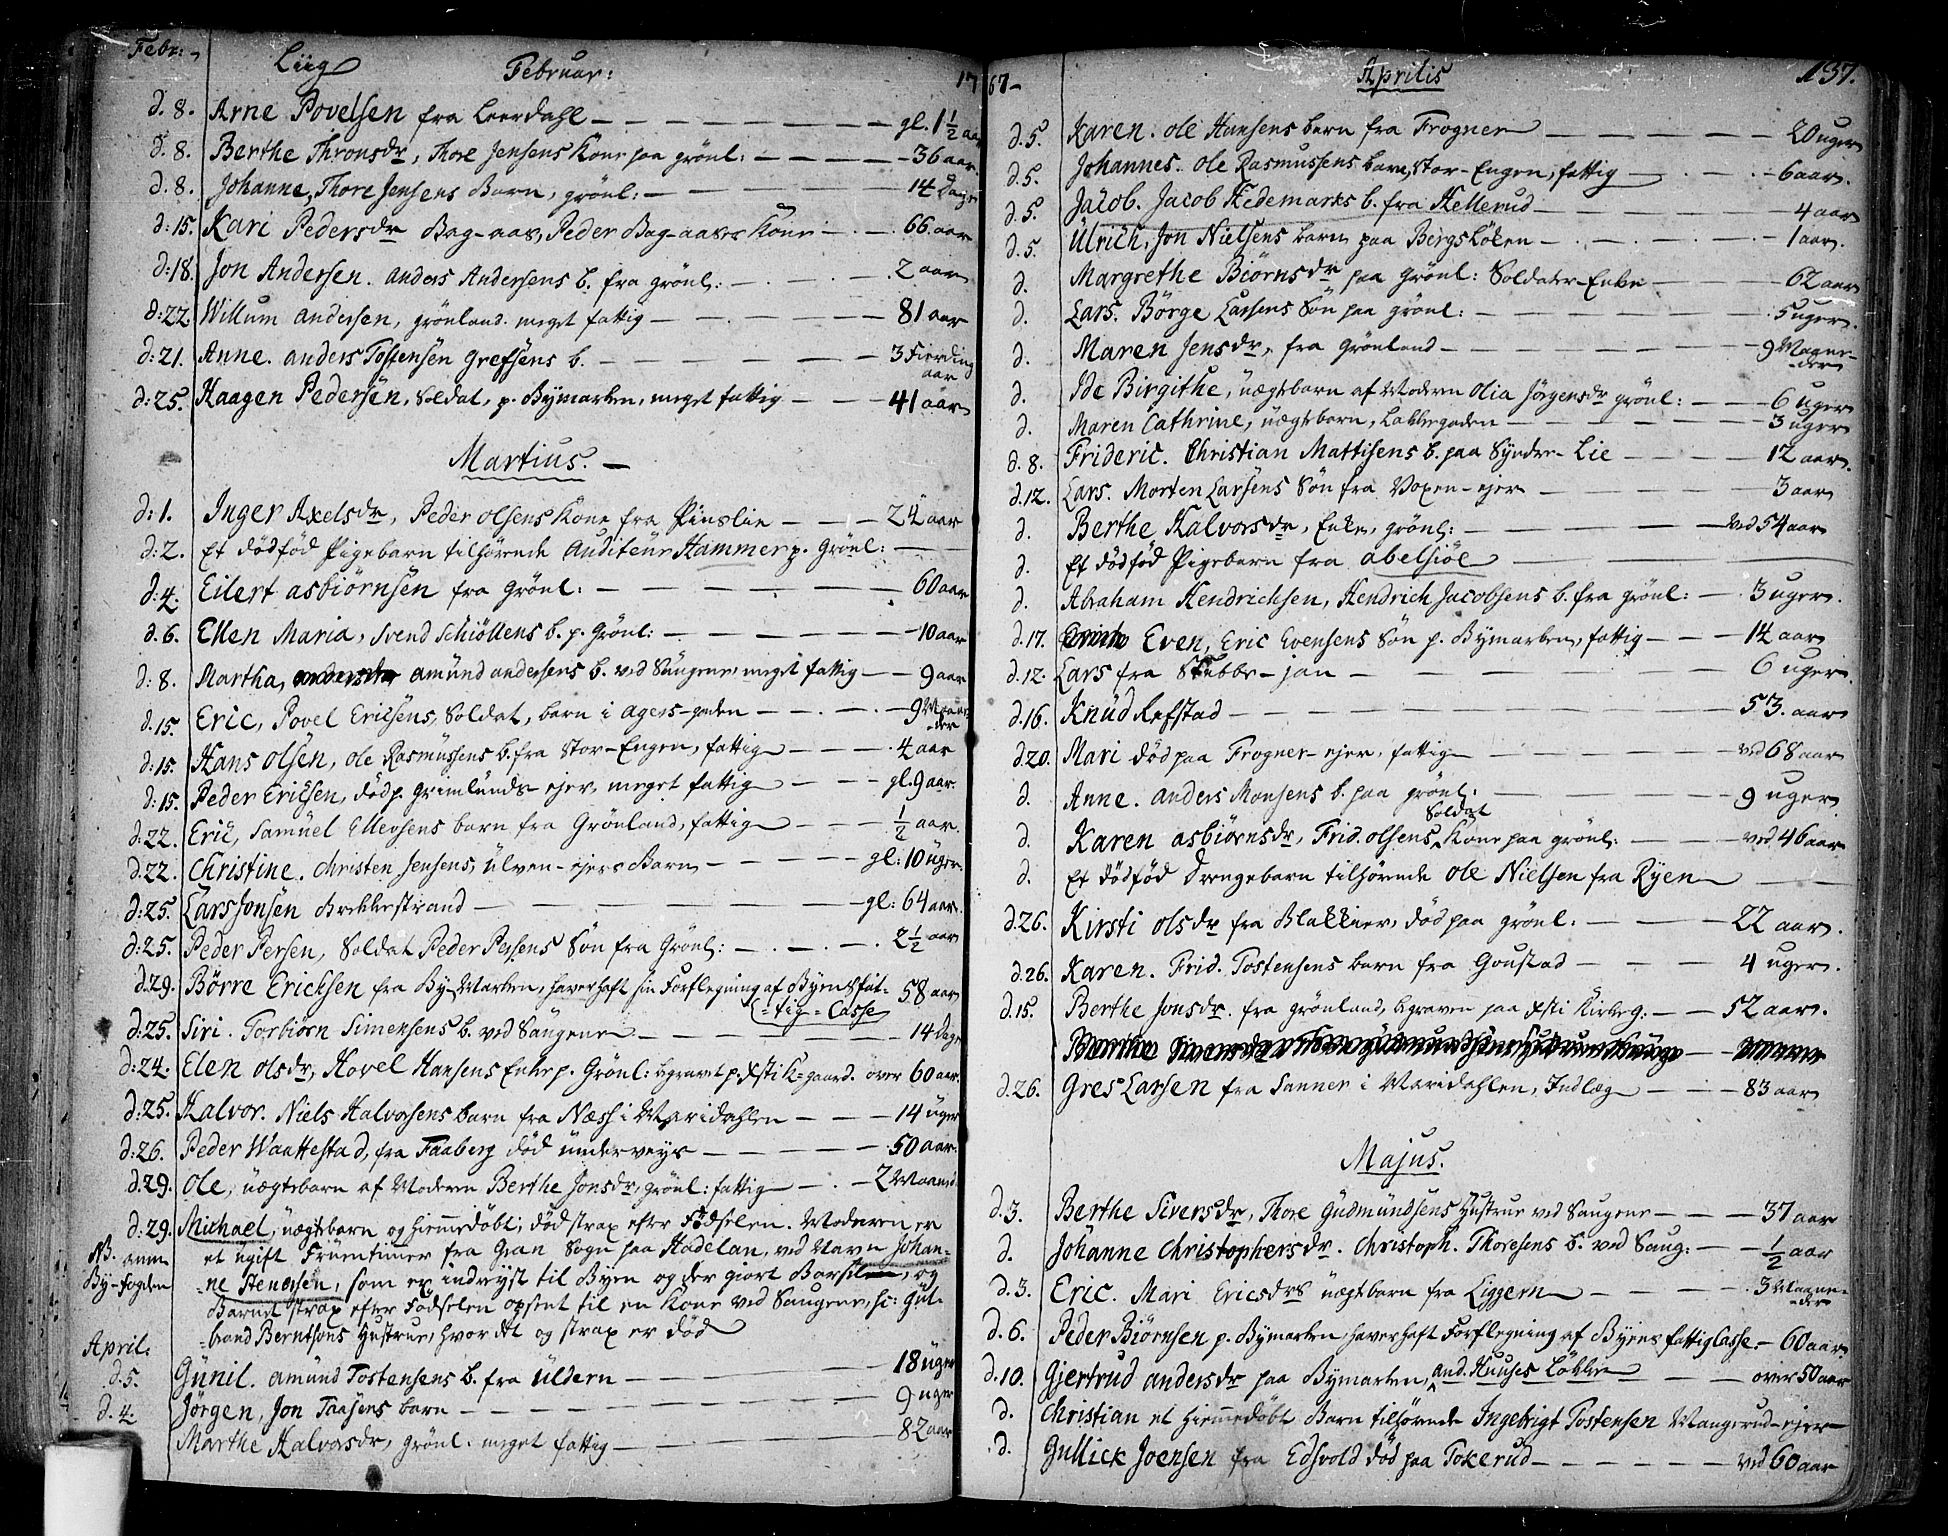 Febr:
Liig Februar: 17
d. 8. Arne Povelsen fra Leerdahl — gl. 1 1/2 aar
d. 8. Berthe Thronsdr, Thore Jensens Kone paa grönl: — 36 aar
d. 8. Johanne, Thore Jensens Barn, grönl: — 14 Dage
d: 15. Kari Pedersdr Bag-aas, Peder Bag-aases Kone — 66 aar
d: 18. Jon Andersen. Anders Andersens b. fra grönl: — 2 aar
d: 22. Willum Andersen, grönland. meget fattig — 81 aar
d: 21. Anne. anders Tostensen Grefsens b. — 3 Fierding
aar
d: 25. Haagen Pedersen, Soldat, p. Bymarken, meget fattig — 41 aar
Martius. —
d: 1. Inger Axelsdr, Peder Olsens Kone fra Pinslie — 24 aar
d: 2. Et dödföd Pigebarn tilhörende Auditeur Hammer p. Grönl: —
d: 4. Eilert Asbiörnsen fra Grönl: — 60 aar
d. 6. Ellen Maria, Svend Schiöllens b. p. Grönl: — 10 aar
d: 8. Martha, amünd andersens b. ved Saugene, meget fattig — 9 aar
d. 15. Eric, Povel Ericsens, Soldat, barn i Agers-gaden — 9 Maane-
der
d: 15. Hans Olsen, Ole Rasmussens b. fra Stor-Engen, fattig — 4 aar
d: 15. Peder Ericsen, död p. Grimlunds-ejer, meget fattig — gl. 9 aar.
d: 22. Eric, Samuel Ellevsens barn fra Grönland, fattig — 1/2 aar.
d: 22. Christine. Christen Jensens, Ulven-ejers Barn — gl: 10 uger
d: 25. Lars Jonsen Brekkestrand — gl: 64 aar.
d: 25. Peder Persen, Soldat Peder Persens Sön fra Grönl: — 2 1/2 aar
d: 29. Börre Ericksen fra By-Marken, haver haft sin Forflegning af Byens fat- 58 aar
-tig-Casse
d: 25. Siri. Torbiörn Simensens b. ved Saugene — 14 dage
d: 24. Elen Olsdr, Hovel Hansens Enke p. Grönl: begravet p. Xsti K-gaard. over 60 aar.
d: 25. Halvor. Niels Halvorsens barn fra Næss i Maridahlen — 14 uger
d: 26. Peder Waattestad, fra Faaberg död underveys — 50 aar.
d: 29. Ole, uægtebarn af Moderen Berthe Jonsdr, grönl: fattig — 2 Maaned.
d: 29. Michael, uægtebarn og hiemmedöbt, död strax efter Födselen. Moderen er
NB. anm. et ugift Fruentimer fra Gran Sogn paa Hadelan, ved Navn Johan-
By-fogden ne Stenersen, som er indreyst til Byen og der giort Barselen, og
Barnet strax efter Födselen opsent til en Kone ved Saugene, sc: Gul-
-brand Berntsons Hustrue, hvor det og strax er död
April:
d. 5. Günil. amünd Tostensens b. fra Uldern — 18 uger
d. 4. Jörgen, Jon Taasens barn — 9 uger
Marthe Halvorsdr, grönl. meget fattig — 82 aar
67- Aprilis 137.
d. 5. Karen. Ole Hansens barn fra Frogner — 20 uger
d. 5. Johannes. Ole Rasmussens barn, Stor-Engen, fattig — 6 aar.
d. 5. Jacob. Jacob Hedemarks b. fra Hellerud — 4 aar
d. 5. Ulrich, Jon Nielsens barn paa Bergslöken — 1 aar.
d. Margrethe Biörnsdr paa Grönl: Soldater-Enke — 62 aar
d. Lars. Börge Larsens Sön paa grönl: — 5 uger.
d. Maren Jensdr, fra Grönland — 9 Maane-
der
d. Ide Birgithe, uægtebarn af Moderen Olia Jörgensdr grönl: — 6 uger
d. Maren Cathrine, uægtebarn, Lakkegaden — 3 uger
d. 8. Frideric. Christian Mattisens b. paa Syndre-Lie — 12 aar.
d. 12. Lars. Morten Larsens Sön fra Voxen-ejer — 3 aar
d. Berthe Halvorsdr, Enke, grönl: — ved 54 aar
d. Et dödföd Pigebarn fra Abelsiöe —
d. Abraham Hendrichsen, Hendrich Jacobsens b. fra grönl: — 3 uger.
d. 17. Even, Eric Evensens Sön p. Bymarken, fattig — 14 aar
d. 12. Lars fra Stubbe-jan — 6 uger
d. 16. Knüd Refstad — 53. aar
d 20. Mari död paa Frogner-ejer, fattig — ved 68 aar
d. Anne. anders Monsens b. paa grönl: — 9 uger
Soldat
d. Karen Asbiörnsdr, Frid. Olsens Kone paa grönl: — ved 46 aar
d. Et dödföd Drengebarn tilhörende Ole Nielsen fra Ryen —
d. 26. Kirsti Olsdr fra Blakkier, död paa grönl: — 22 aar.
d. 26. Karen. Frid. Tostensens barn fra Goustad — 4 uger.
d. 15. Berthe Jonsdr. fra grönland, begraven paa Xsti Kirkeg: — 52 aar.
d. 26. Gres Larsen fra Sanner i Maridahlen, Indlæg — 83 aar
Majus.
d. 3. Berthe Siversdr, Thore Gudmundsens Hustrue ved Saugene — 37 aar
d. Johanne Christophersdr. Christoph. Thoresens b. ved Saug: — 1/2 aar
d. 3. Eric. Mari Ericsdrs uægtebarn fra Liggern — 3 Maane-
-der
d. 6. Peder Biörnsen p. Bymarken, haver haft Forflegning af Byens fattig Casse. — 60 aar.
d. 10. Gjertrud andersdr paa Bymarken, And. Huuses Lökke — over 50 aar
d. Christian et hiemmedöbt Barn tilhörende Ingebrigt Tostensen Mangerud-ejer
d. Gullick Joensen fra Edsvold död paa Tokerud — ved 60 aar